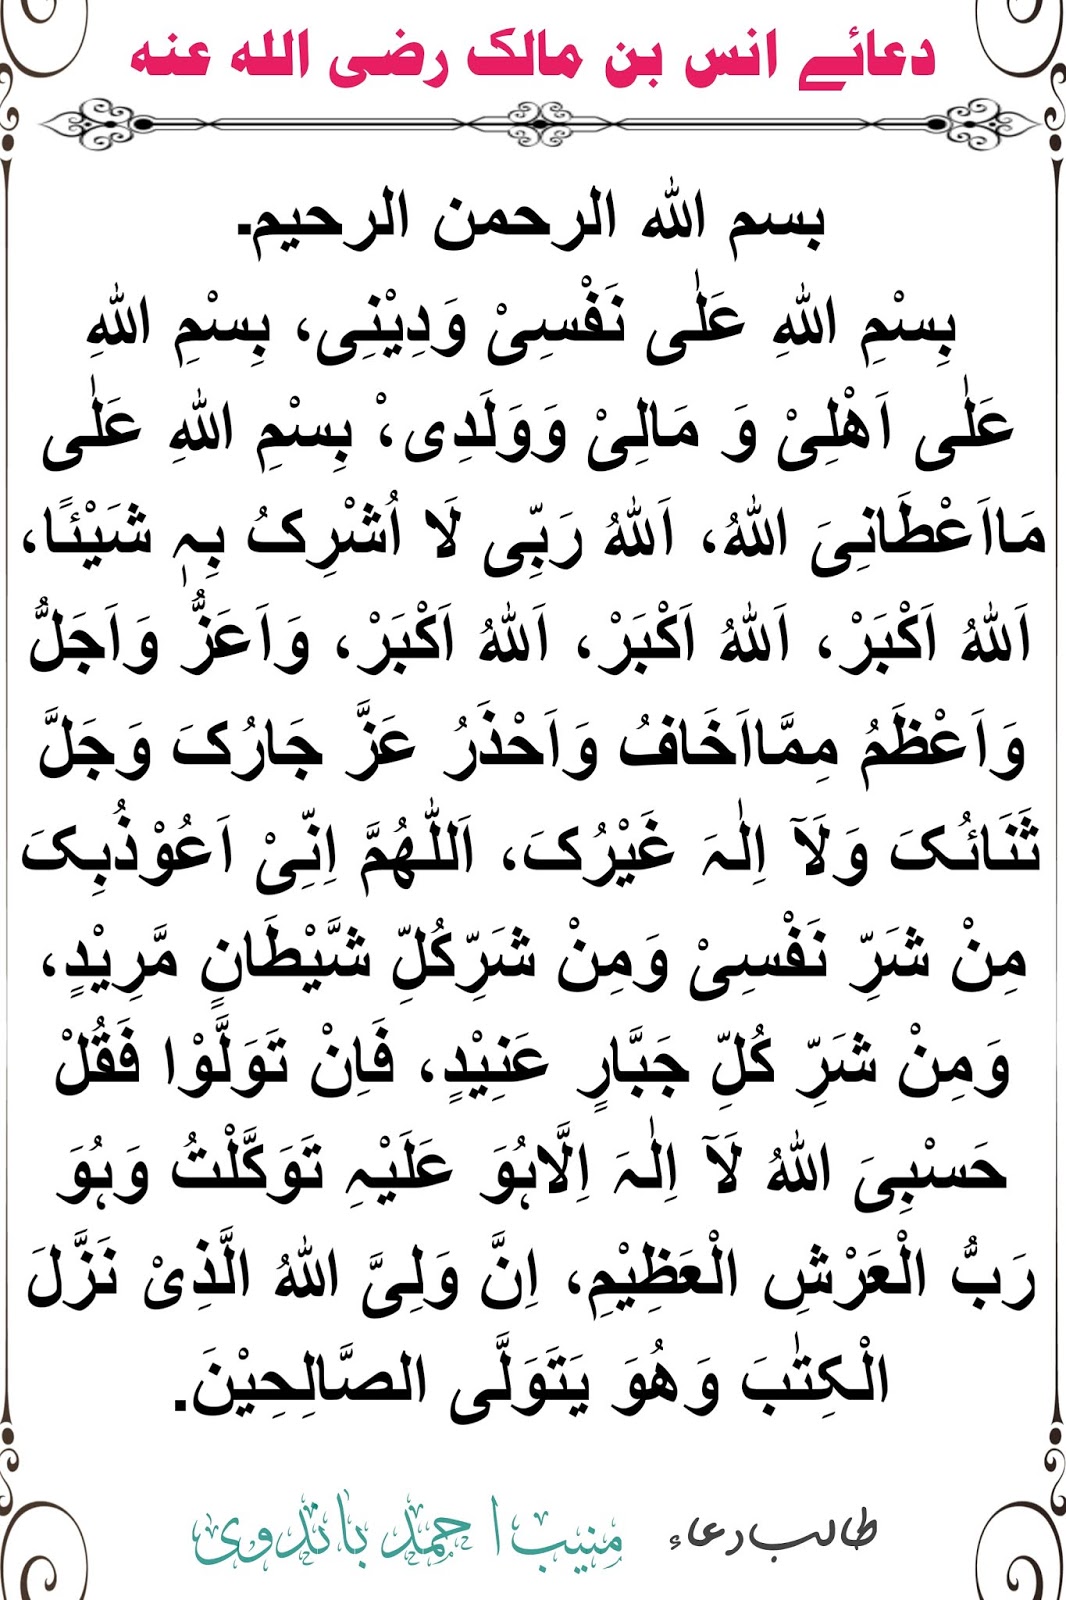 دعائے انس بن مالک رضی الله عنه
بسم الله الرحمن الرحیم۔
بِسْمِ اللهِ عَلٰی نَفْسِیْ وَدِیْنِی، بِسْمِ اللهِ
عَلٰی اَهْلِیْ وَ مَالِیْ وَوَلَدِی،ْ بِسْمِ اللهِ عَلٰی
مَااَعْطَانِیَ اللهُ، اَللهُ رَبِّی لَا اُشْرِکُ بِہٖ شَیْئًا،
اَللهُ اَکْبَرْ، اَللهُ اَکْبَرْ، اَللهُ اَکْبَرْ، وَاَعَزُّ وَاَجَلُّ
وَاَعْظَمُ مِمَّااَخَافُ وَاَحْذَرُ عَزَّ جَارُکَ وَجَلَّ
ثَنَائُکَ وَلَآ اِلٰہَ غَیْرُکَ، اَللّٰهُمَّ اِنِّیْ اَعُوْذُبِکَ
مِنْ شَرِّ نَفْسِیْ وَمِنْ شَرِّکُلِّ شَّیْطَانٍ مَّرِیْدٍ،
وَمِنْ شَرِّ کُلِّ جَبَّارٍ عَنِیْدٍ، فَاِنْ تَوَلَّوْا فَقُلْ
حَسْبِیَ اللهُ لَآ اِلٰہَ اِلَّاہُوَ عَلَیْہِ تَوَکَّلْتُ وَہُوَ
رَبُّ الْعَرْشِ الْعَظِیْمِ، اِنَّ وَلِیَّ اللهُ الَّذِیْ نَزَّلَ
الْکِتٰبَ وَهُوَ یَتَوَلَّی الصَّالِحِیْنَ.
طالب دعاء منیب احمد باندوی